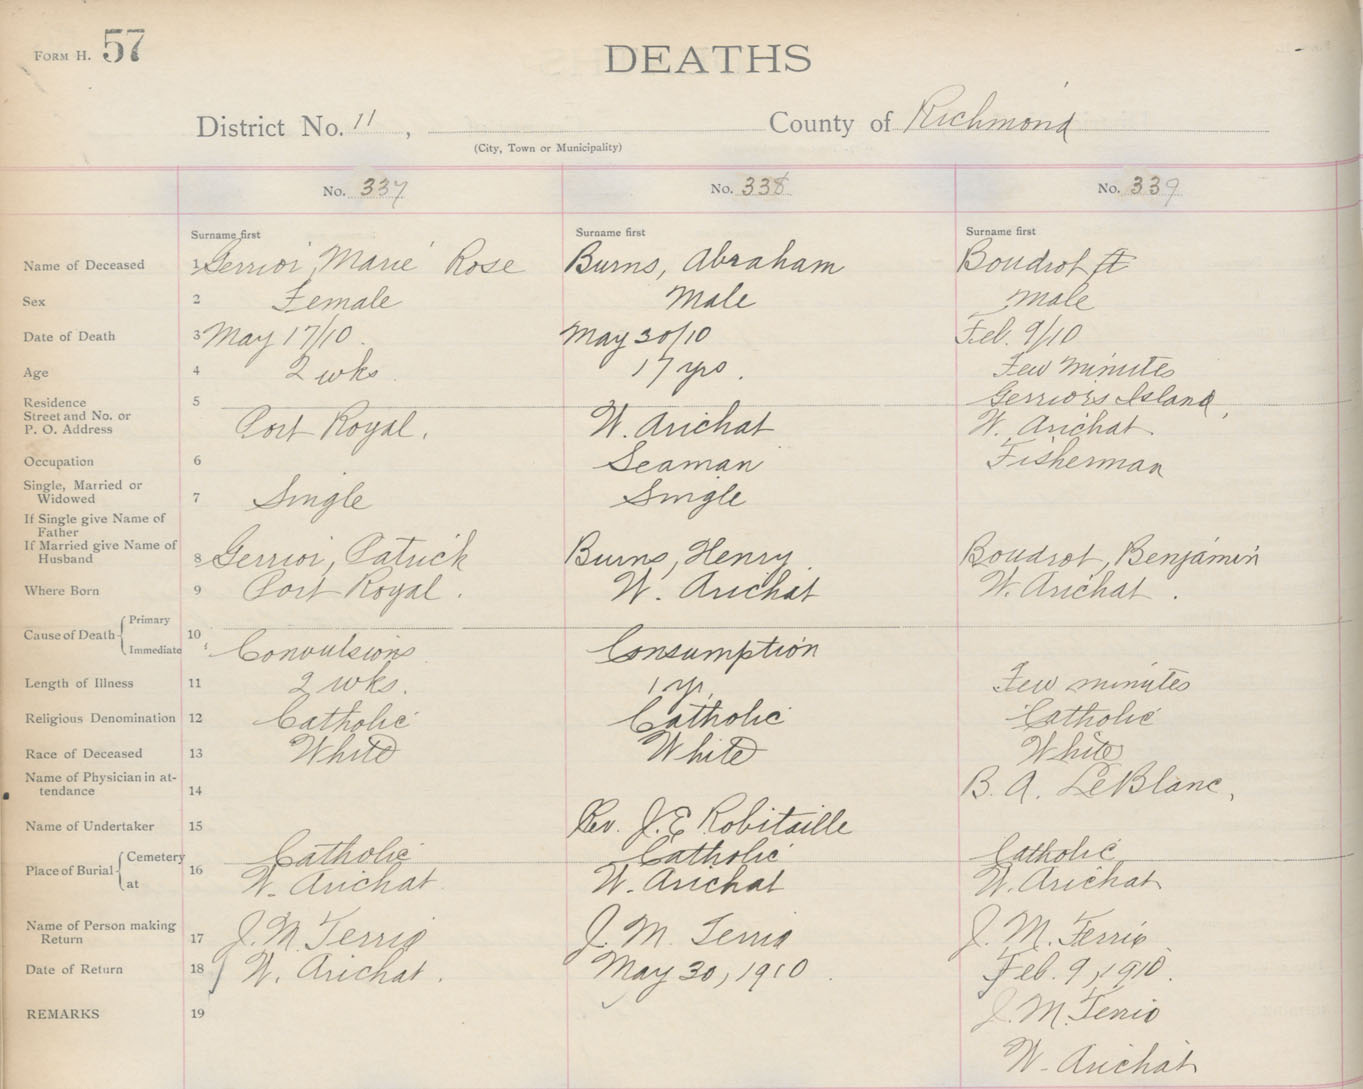 FORM H. 57
DEATHS
District No. 11, County of Richmond
(City, Town or Municipality)
No. 337 No. 338 No. 339
Surname first Surname first Surname first
Name of Deceased 1 Gerrior, Marie Rose Burns, Abraham Boudrot
Sex 2 Female Male Male
Date of Death 3 May 17/10. May 30/10 Feb. 9/10
Age 4 2 wks. 17 yrs. Few minutes
Residence 5 Gerriors Island,
Street and No. or
P. O. Address Port Royal. W. Arichat W. Arichat.
Occupation 6 Seaman Fisherman
Single, Married or
Widowed 7 Single Single
If Single give Name of
Father
If Married give Name of
Husband 8 Gerrior, Patrick Burns, Henry Boudrot, Benjamin
Where Born 9 Port Royal. W. Arichat W. Arichat.
Cause of Death Primary 10
Immediate Convulsions Consumption
Length of Illness 11 2 wks. 1 yr. Few minutes
Religious Denomination 12 Catholic Catholic Catholic
Race of Deceased 13 White White White
Name of Physician in at-
tendance 14 B. A. LeBlanc,
Name of Undertaker 15 Rev. J. E Robitaille
Place of Burial Cemetery 16 Catholic Catholic Catholic
at W. Arichat W. Arichat W. Arichat
Name of Person making
Return 17 J. M. Terrio J. M. Terrio J. M. Terrio
Date of Return 18 W. Arichat. May 30, 1910. Feb. 9, 1910.
REMARKS 19 J. M. Terrio
W. Arichat